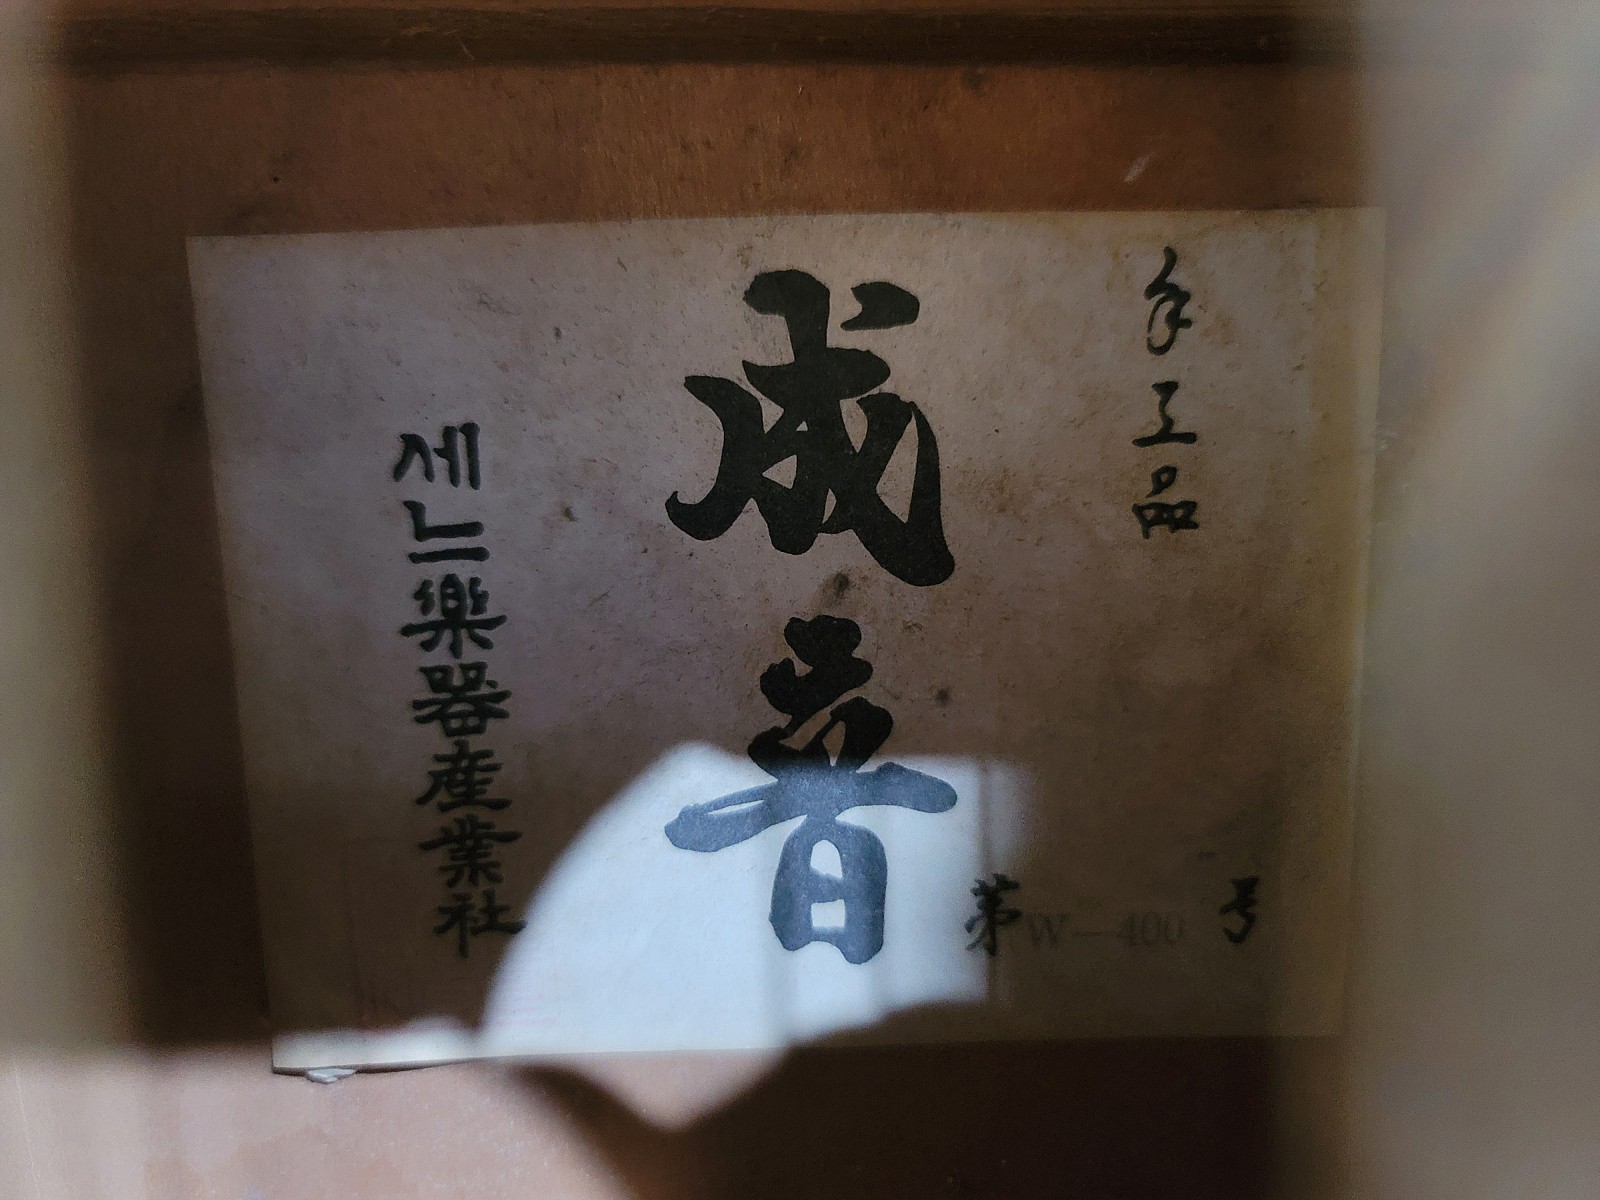 手工品
成音
第W-400号
세느樂器産業社